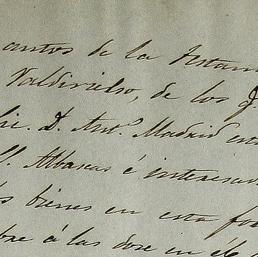 autos de la Testam
Valdivielso, de los
D. Ant.º Madrid
Albaceas é interesa
bienes en esta fo
bre á las doce en él